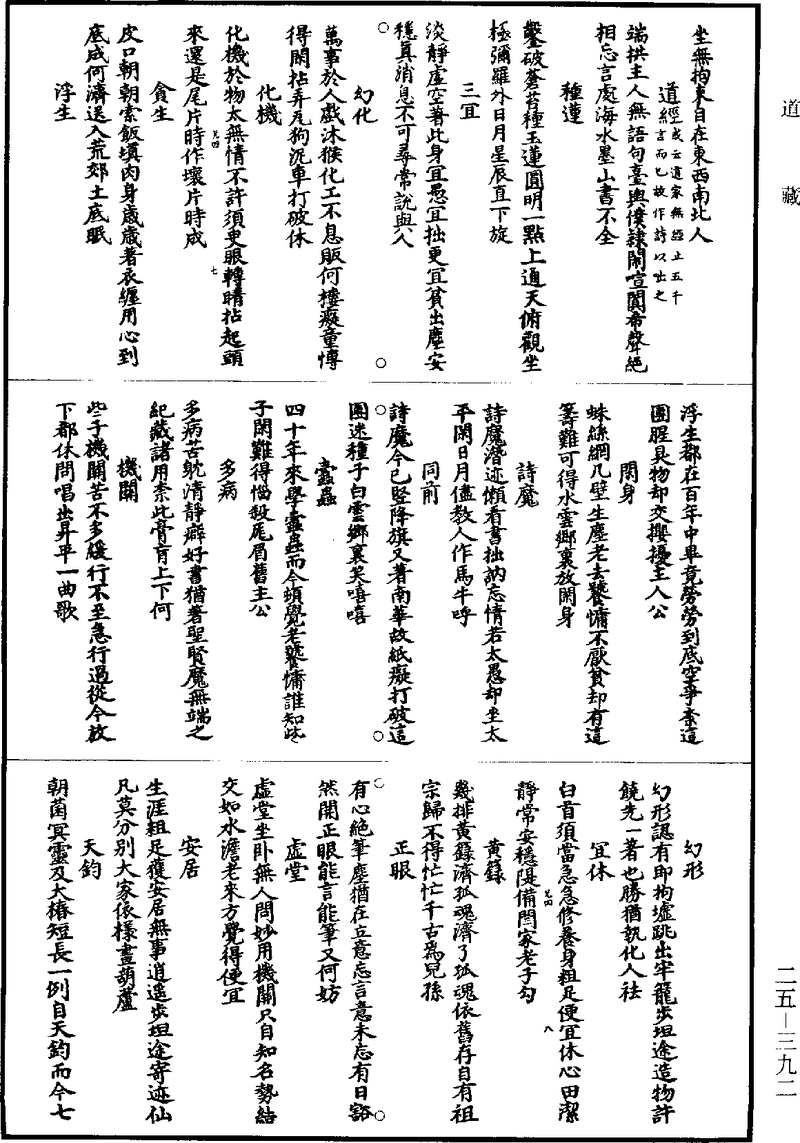 道藏
坐無拘束自在東西南北人
道經或云道家無經止五千
言而已故作詩以出之
端拱主人無語句臺輿僕隸鬧喧闐希聲絕
相忘言處海水墨山書不全
種蓮
鑿破蒼苔種玉蓮圓明一點上通天俯觀坐
極彌羅外日月星辰直下旋
三宜
淡靜虛空著此身宜愚宜拙更宜貧出塵安
穩真消息不可尋常說與人
幻化
萬事於人戲沐猴化工不息販何樓癡童慱
得閑拈弄瓦狗泥車打破休
化機
化機於物太無情不許須臾眼轉睛拈起頭
來還是尾片時作壞片時成
貪生
皮口朝朝索飯塡肉身歲歲著衣纏用心到
底成何濟送入荒郊土底眠
浮生
浮生都在百年中畢竟勞勞到底空爭柰這
團腥臭物却交攖擾主人公
閑身
蛛絲網几壁生塵老去饕慵不厭貧却有這
籌難可得水雲鄉裏放閑身
詩魔
詩魔潛迹懶看書拙訥忘情若太愚却坐太
平閑日月儘教人作馬牛呼
同前
詩魔今已竪降旗又著南華故紙癡打破這
團迷種子白雲鄉裏笑嘻嘻
蠹蟲
四十年來學蠹蟲而今頓覺老饕慵誰知此
子閑難得惱殺厖眉舊主公
多病
多病苦躭清靜癖好書猶著聖賢魔無端之
紀藏諸用柰此膏肓上下何
機關
些子機關苦不多緩行不至急行過從今放
下都休問唱出昇平一曲歌
幻形
幻形認有即拘墟跳出牢籠步坦途造物許
饒先一著也勝猶執化人祛
宜休
白首須當急急修養身粗足便宜休心田潔
靜常安穩隄備閻家老子勾
黃籙
幾排黃籙濟孤魂濟了孤魂依舊存自有祖
宗歸不得忙忙千古爲兒孫
正眼
有心絕筆塵猶在立意忘言意未忘有日豁
然開正眼能言能筆又何妨
虛堂
虛堂坐卧無人問妙用機關只自知名勢結
交如水澹老來方覺得便宜
安居
生涯粗足獲安居無事逍遥步坦途寄迹仙
凡莫分別大家依樣畫葫蘆
天鈞
朝菌冥靈及大椿短長一例自天鈞而今七
二五—三九二